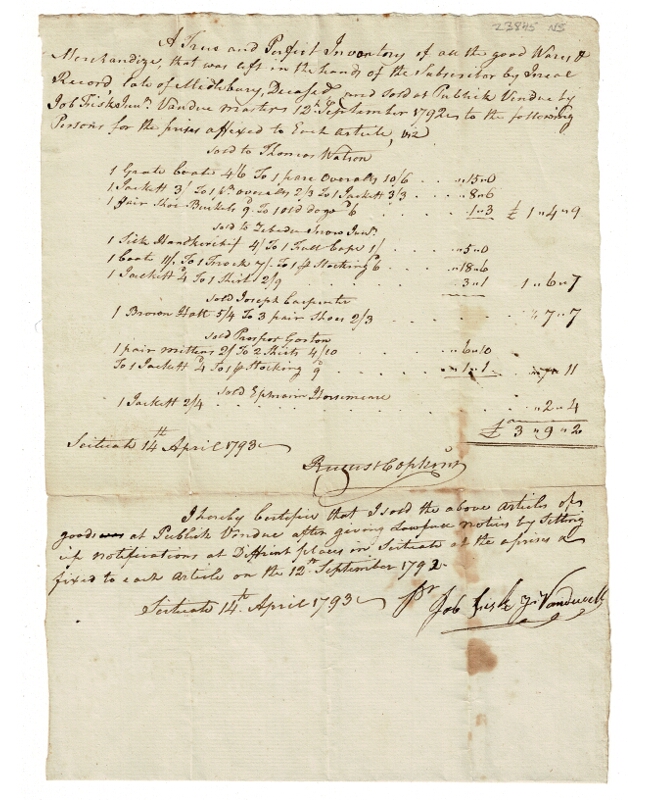 23845 NS
A True and Perfect Inventory of all the good Wares &
Merchandize, that was left in the hands of the Subscriber by
Record, late of Midlebury, Deceased, and Sold at Publick Vendue by
Job Fisk Junr. Vandue master 12th September 1792 to the following
Persons for the prises affexed to Each article, viz
Sold to Thomas Watson
1 Coate 4/6 To 1 pare Overalls 10/6 . . . " 15 " 0
1 Jackett 3/ To 1 overalls 2/3 To 1 Jackett 3/3 . . . " 8 " 6
1 pair Shoe Buckels 9d To 1 old 6 . . . " 1 " 3 £ 1 " 4 " 9
Sold to Junr.
1 Silk Handkirchif 4/ To 1 Cape 1/ . . . " 5 " 0
1 Coate 11/ To 1 Frock 7/ To 1 pr Stocking 6 . . . " 18 " 6
1 Jackett 4d To 1 Shirt 2/9 . . . " 3 " 1 1 " 6 " 7
Sold Joseph Carpenter
1 Brown Hatt 5/4 To 3 pair Shoes 2/3 . . . " 7 " 7
Sold Prosper Gorton
1 pair mittens 2/ To 2 Shirts 4/10 . . . " 6 " 10
To 1 Jackett 4d To 1 pr Stocking 9d . . . " 1 " 1 " 7 " 11
Sold Ephraim
1 Jackett 2/4 . . . " 2 " 4
£ 3 " 9 " 2
Scituate 14th April 1793
Hopkins
I hereby Certifie that I sold the above Articles of
goods at Publick Vendue after giving notis by Setting
up Notifications at Diffrint places in Scituate at the a prises a
fixed to each Article on the 12th September 1792
Scituate 14th April 1793 pr Job Fisk Jr